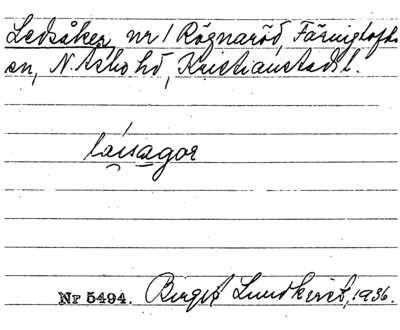 Ledsåker nr 1 Rögnaröd, Färingtofta
sn, N. Åsbo hd, Kristianstads l.
laisagor
Nr 5494. Birgit Lundkvist, 1936.